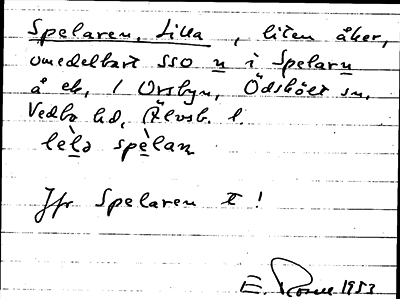 Spelaren, Lilla, liten åker,
omedelbart SSO n i Spelarn
å ek, / Ursbyn, Ödskölt sn,
Vedbo hd, Älvsb. l.
lèlə spèlan
Jfr Spelaren t !
E. 1953